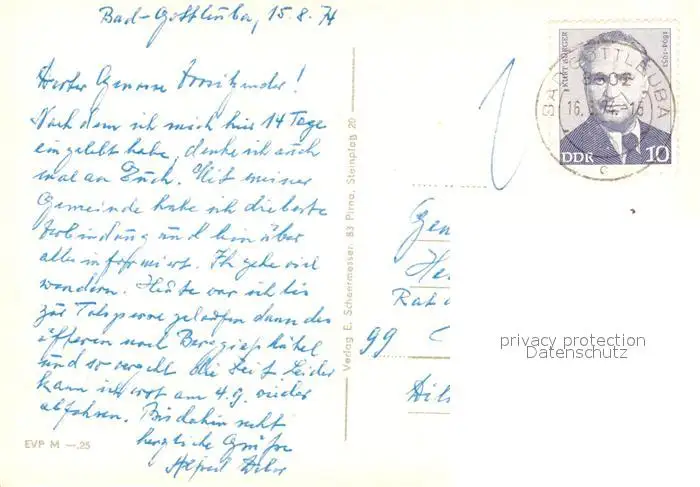 Bad-Gottleuba, 15.8.74
Werter Genosse Vorsitzender!
Nach dem ich mich hier 14 Tage
eingelebt habe, denke ich auch
mal an Euch. Mit meiner
Gemeinde habe ich die beste
Verbindung und bin über
alles informiert. Ich gehe viel
wandern. Heute war ich bis
zur Talsperre gelaufen dann des
öfteren nach Berggießhübel
und so vergeht die Zeit. Leider
kann ich erst am 4.9. wieder
abfahren. Bis dahin recht
herzliche Grüße
Alfred
EVP M —,25
Verlag E. Schaarmesser, 83 Pirna, Steinplatz 20
KURT BÜRGER
1894-1951
DDR 10
BAD GOTTLEUBA
8302
16. 8. 74.-16
c
Gen
He
Rat d
99 C
privacy protection
Datenschutz